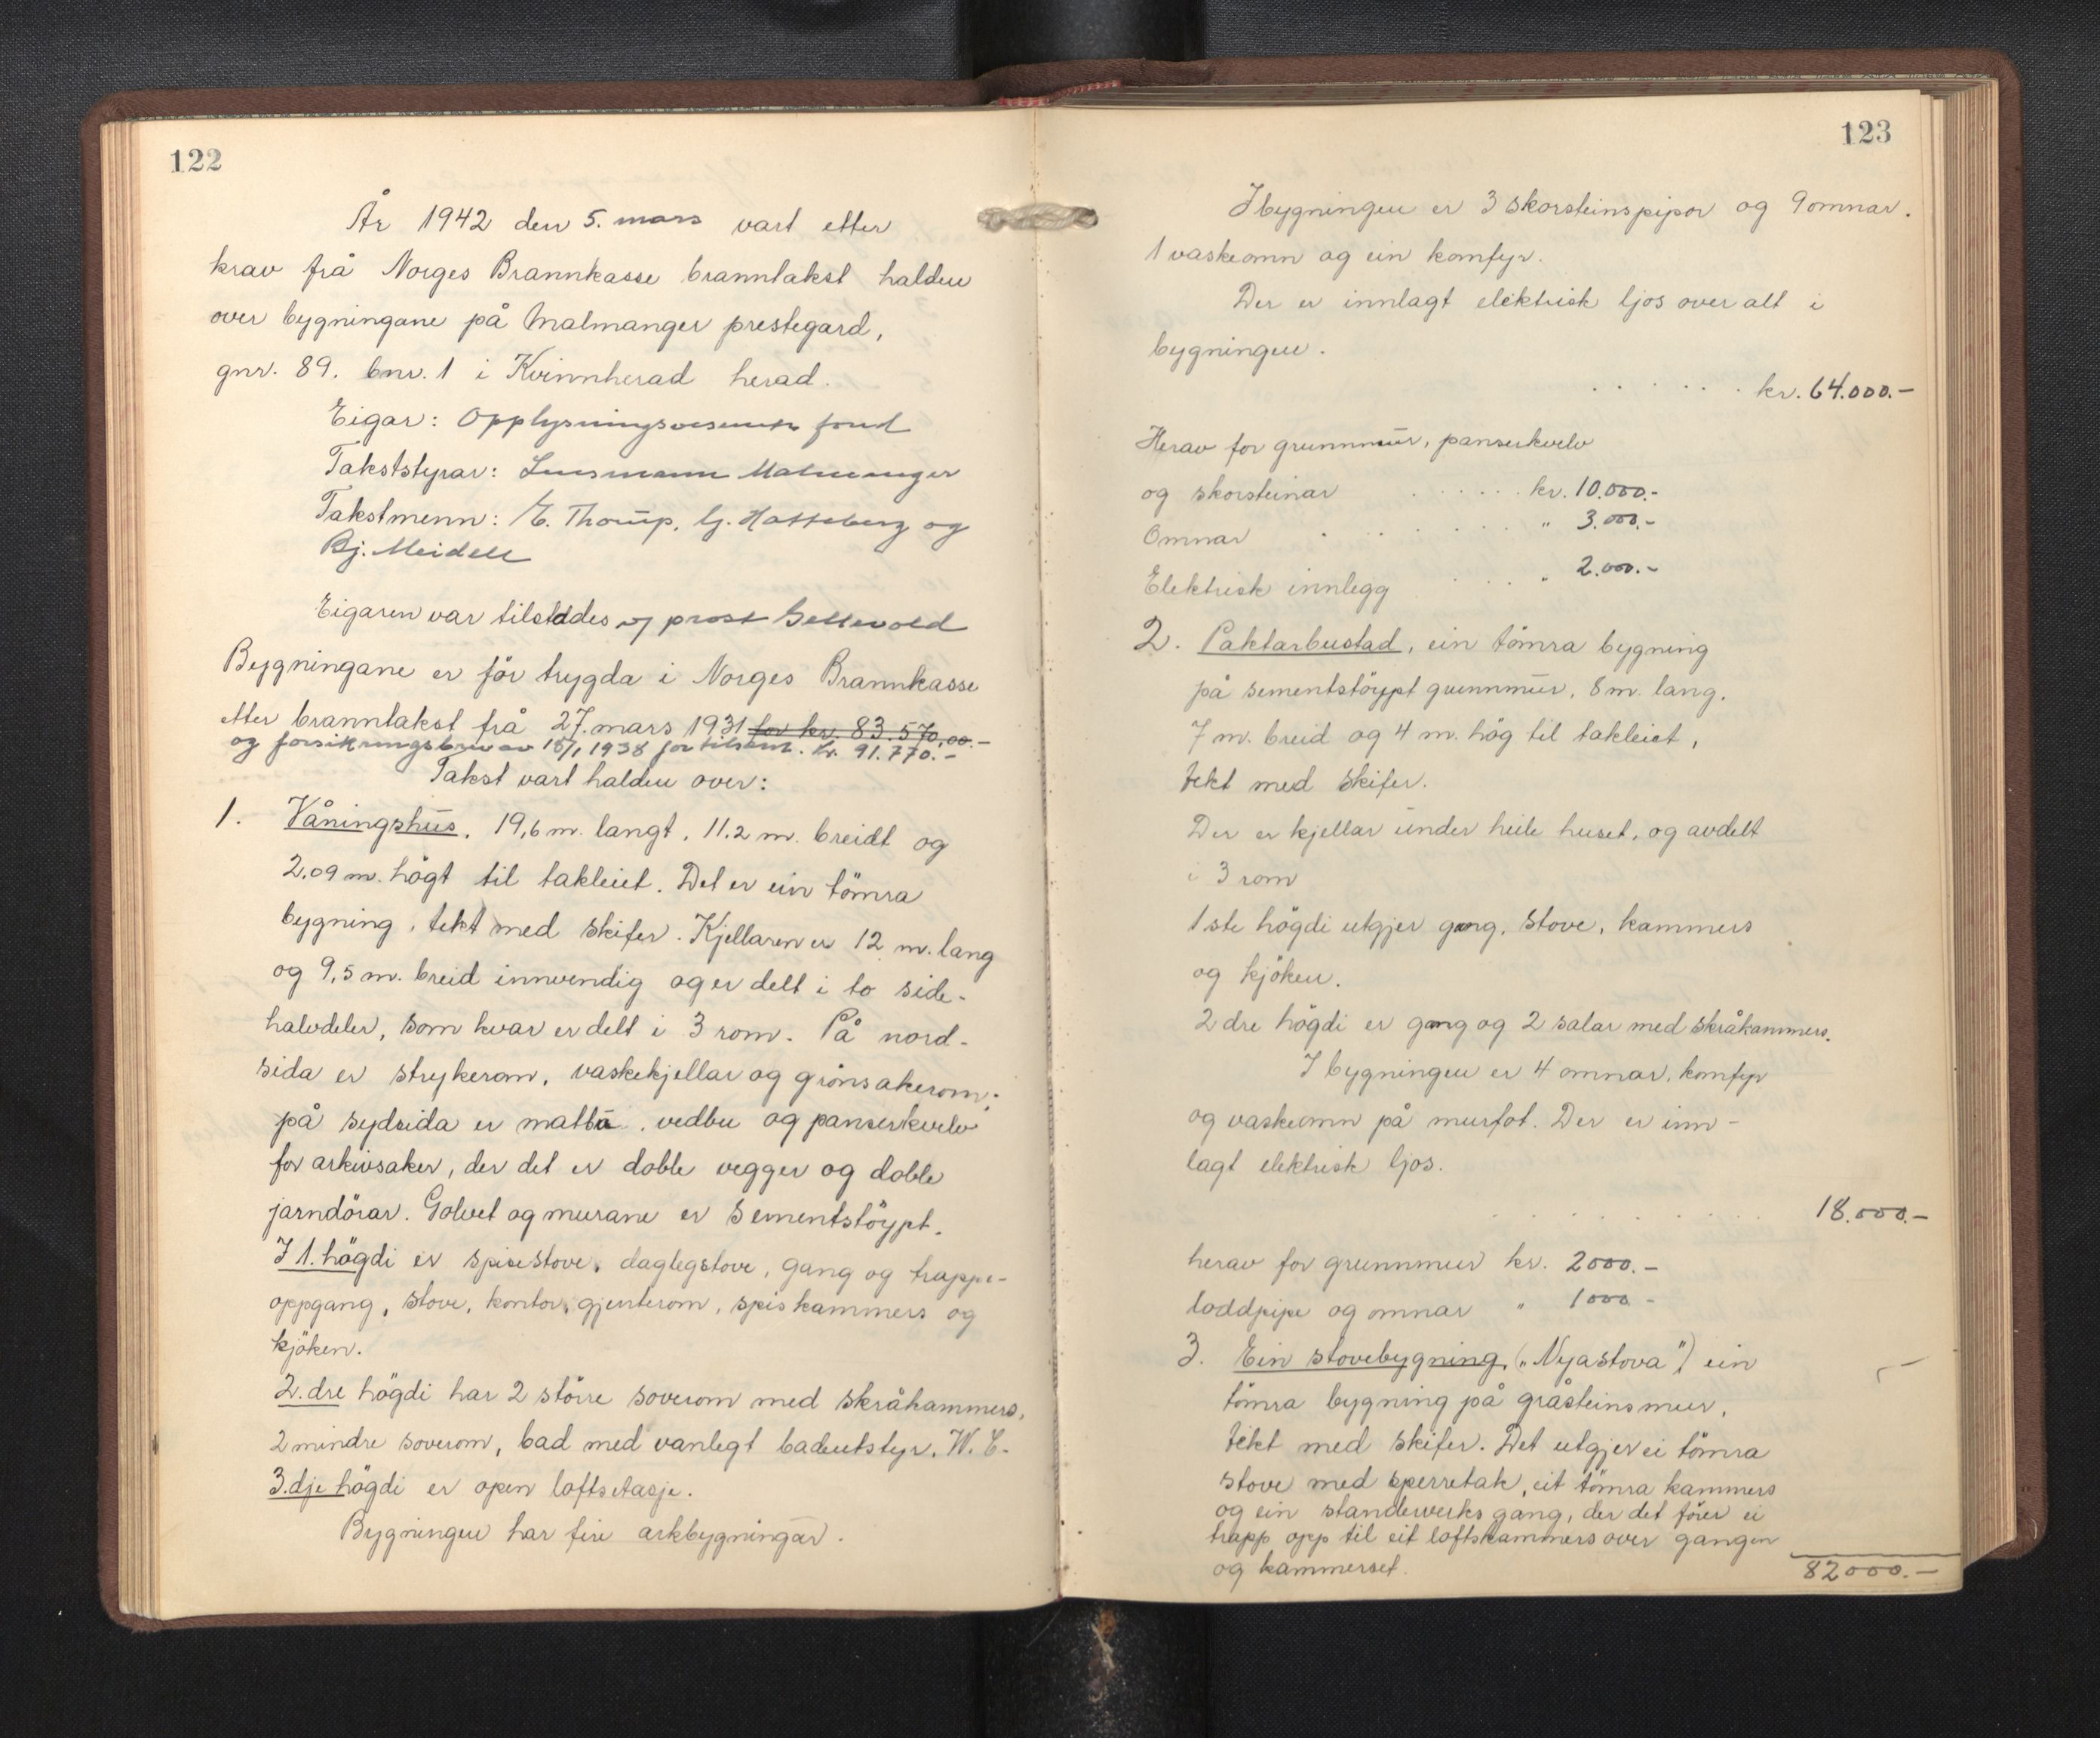 122
År 1942 den 5. mars vart etter
krav frå Norges Brannkasse branntakst halden
over bygningane på Malmanger prestegard,
gnr. 89. bnr. 1 i Kvinnherad herad.
Eigar: Opplysningsvesenets fond
Takststyrar: Lensmann Malmanger
Takstmenn: E. Thorup, G. Hatteberg og
Bj. Meidell
Eigaren var tilstades og prost
Bygningane er för trygda i Norges Brannkasse
etter branntakst frå 27. mars 1931 for kr. 83.570,00.-
og forsikringsbrev av 18/1 1938 for tilsam. kr. 91.770.-
Takst vart halden over:
1. Våningshus, 19,6 m. langt, 11.2 m. breidt og
2,09 m. högt til takleiet. Det er ein tömra
bygning, tekt med skifer. Kjellaren er 12 m. lang
og 9,5 m. breid innvendig og er delt i to side-
halvdeler, som kvar er delt i 3 rom. På nord-
sida er strykerom, vaskekjellar og grönsakerom;
på sydsida er matbu, vedbu og panserkvelv
for arkivsaker, der det er doble vegger og doble
jarndörar. Golvet og murane er sementstöypt.
I 1. högdi er spisestove, daglegstove, gang og trappe-
oppgang, stove, kontor, gjenterom, spiskammers og
kjöken.
2. dre högdi har 2 större soverom med skråkammers,
2 mindre soverom, bad med vanlegt badeutstyr, W. C.
3. dje högdi er open loftsetasje.
Bygningen har fire arkbygningar.
123
I bygningen er 3 skorsteinspipor og 9 omnar.
1 vaskeomn og ein komfyr.
Der er innlagt elektrisk ljos over alt i
bygningen.
. . . . . . kr. 64.000.-
Herav for grunnmur, panserkvelv
og skorsteinar . . . . . kr. 10.000.-
Omnar . . . . . " 3.000.-
Elektrisk innlegg . . . " 2.000.-
2. Paktarbustad, ein tömra bygning
på sementstöypt grunnmur, 8 m. lang,
7 m. breid og 4 m. hög til takleiet,
tekt med skifer.
Der er kjellar under heile huset, og avdelt
i 3 rom
1ste högdi utgjer gang, stove, kammers
og kjöken.
2dre högdi er gang og 2 salar med skråkammers.
I bygningen er 4 omnar, komfyr
og vaskeomn på murfot. Der er inn-
lagt elektrisk ljos.
. . . . . . . 18.000.-
herav for grunnmur kr. 2000.-
loddpipe og omnar " 1000 -
3. Ein stovebygning, („Nyastova") ein
tömra bygning på gråsteinsmur,
tekt med skifer. Det utgjer ei tömra
stove med sperretak, eit tömra kammers
og ein standerverks gang, der det förer ei
trapp opp til eit loftskammers over gangen
og kammerset.
82000.-